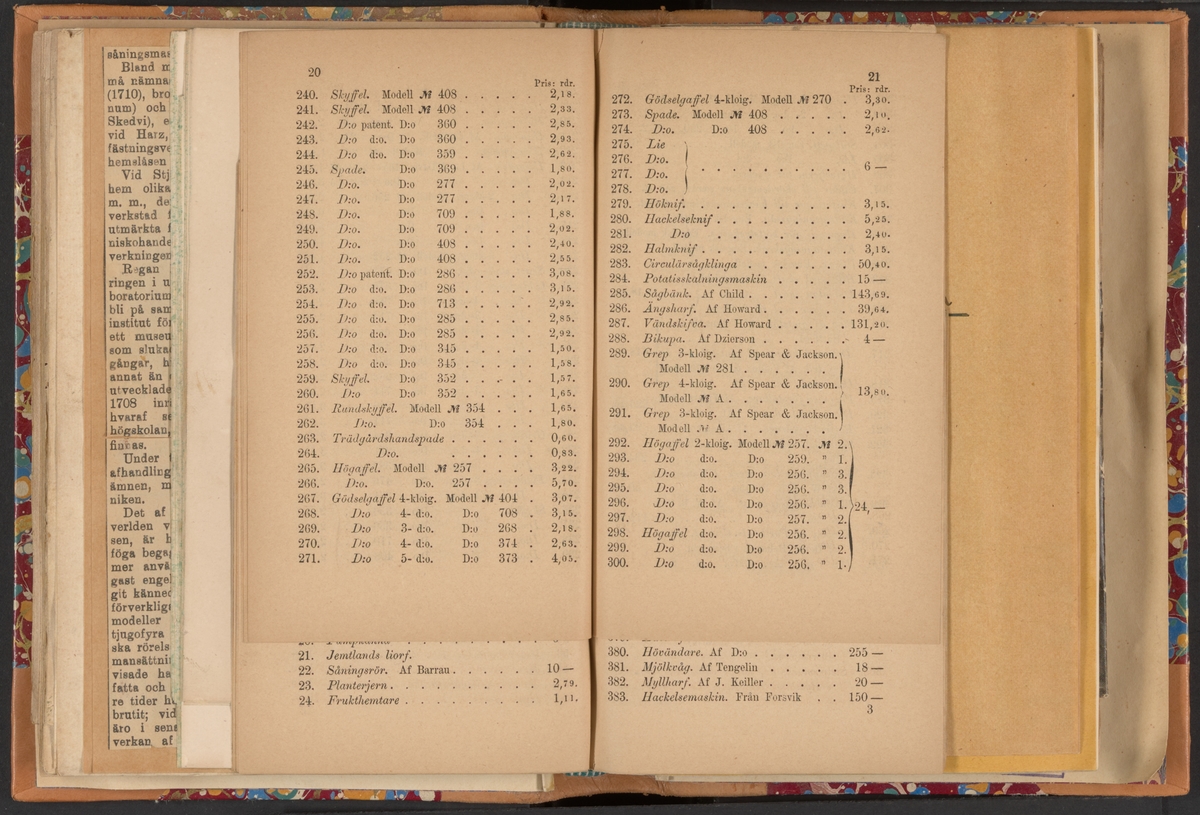 såningsmas
Bland m
må nämna
(1710), bro
num) och
Skedvi), e
vid Harz,
fästningsve
hemslåsen
Vid Stj
hem olika
m. m., de
verkstad f
utmärkta f
niskohande
verkningen
Regan
ringen i u
boratorium
bli på sam
institut för
ett museu
som sluka
gångar, h
annat än
utvecklade
1708 inr
hvaraf se
högskolan,
finnas.
Under
afhandling
ämnen, m
niken.
Det af
verlden v
sen, är h
föga begag
mer anvä
gast engel
git känned
förverklig
modeller
tjugofyra
ska rörels
mansättni
visade ha
fatta och
re tider h
brutit; vid
äro i sens
verkan af
20
Pris: rdr.
240. Skyffel. Modell № 408 . . . . . 2,18.
241. Skyffel. Modell № 408 . . . . . 2,33.
242. D:o patent. D:o 360 . . . . . 2,85.
243. D:o d:o. D:o 360 . . . . . 2,93.
244. D:o d:o. D:o 359 . . . . . 2,62.
245. Spade. D:o 369 . . . . . 1,80.
246. D:o. D:o 277 . . . . . 2,02.
247. D:o. D:o 277 . . . . . 2,17.
248. D:o. D:o 709 . . . . . 1,88.
249. D:o. D:o 709 . . . . . 2,02.
250. D:o. D:o 408 . . . . . 2,40.
251. D:o. D:o 408 . . . . . 2,55.
252. D:o patent. D:o 286 . . . . . 3,08.
253. D:o d:o. D:o 286 . . . . . 3,15.
254. D:o d:o. D:o 713 . . . . . 2,92.
255. D:o d:o. D:o 285 . . . . . 2,85.
256. D:o d:o. D:o 285 . . . . . 2,92.
257. D:o d:o. D:o 345 . . . . . 1,50.
258. D:o d:o. D:o 345 . . . . . 1,58.
259. Skyffel. D:o 352 . . . . . 1,57.
260. D:o D:o 352 . . . . . 1,65.
261. Rundskyffel. Modell № 354 . . . . 1,65.
262. D:o. D:o 354 . . . . 1,80.
263. Trädgårdshandspade . . . . . . 0,60.
264. D:o. . . . . . . 0,83.
265. Högaffel. Modell № 257 . . . . 3,22.
266. D:o. D:o. 257 . . . . 5,70.
267. Gödselgaffel 4-kloig. Modell № 404 . 3,07.
268. D:o 4- d:o. D:o 708 . 3,15.
269. D:o 3- d:o. D:o 268 . 2,18.
270. D:o 4- d:o. D:o 374 . 2,63.
271. D:o 5- d:o. D:o 373 . 4,05.
21. Jemtlands liorf.
22. Såningsrör. Af Barrau . . . . . . 10 —
23. Planterjern . . . . . . . . . . 2,79.
24. Frukthemtare . . . . . . . . . 1,11.
21
Pris: rdr.
272. Gödselgaffel 4-kloig. Modell № 270 . 3,30.
273. Spade. Modell № 408 . . . . . 2,10.
274. D:o. D:o 408 . . . . . 2,62.
275. Lie
276. D:o.
277. D:o. . . . . . . . . . 6 —
278. D:o.
279. Höknif. . . . . . . . . . . 3,15.
280. Hackelseknif . . . . . . . . . 5,25.
281. D:o . . . . . . . . . 2,40.
282. Halmknif . . . . . . . . . . 3,15.
283. Circulärsågklinga . . . . . . . 50,40.
284. Potatisskalningsmaskin . . . . . 15 —
285. Sågbänk. Af Child . . . . . . . 143,69.
286. Ängsharf. Af Howard . . . . . . 39,64.
287. Vändskifva. Af Howard . . . . . 131,20.
288. Bikupa. Af Dzierson . . . . . . 4 —
289. Grep 3-kloig. Af Spear & Jackson.
Modell № 281 . . . . . .
290. Grep 4-kloig. Af Spear & Jackson.
Modell № A . . . . . . . 13,80.
291. Grep 3-kloig. Af Spear & Jackson.
Modell № A . . . . . . .
292. Högaffel 2-kloig. Modell № 257. № 2.
293. D:o d:o. D:o 259. " 1.
294. D:o d:o. D:o 256. " 3.
295. D:o d:o. D:o 256. " 3.
296. D:o d:o. D:o 256. " 1. 24, —
297. D:o d:o. D:o 257. " 2.
298. Högaffel d:o. D:o 256. " 2.
299. D:o d:o. D:o 256. " 2.
300. D:o d:o. D:o 256. " 1.
380. Hövändare. Af D:o . . . . . . 255 —
381. Mjölkvåg. Af Tengelin . . . . . 18 —
382. Myllharf. Af J. Keiller . . . . . 20 —
383. Hackelsemaskin. Från Forsvik . . 150 —
3